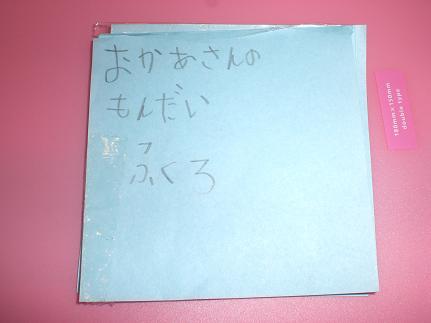 おかあさんの
もんだい
ふくろ
180mm×150mm
double type